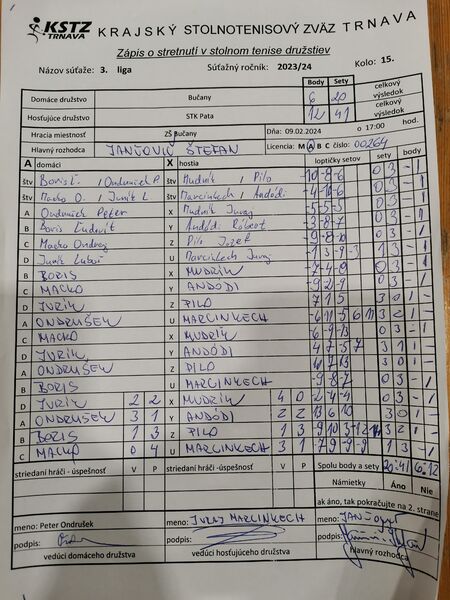 KSTZ TRNAVA KRAJSKÝ STOLNOTENISOVÝ ZVÄZ TRNAVA
Zápis o stretnutí v stolnom tenise družstiev
Názov súťaže: 3. liga Súťažný ročník: 2023/24 Kolo: 15.
Body Sety celkový výsledok
Domáce družstvo Bučany 6 20
Hosťujúce družstvo STK Pata 12 41 celkový výsledok
Hracia miestnosť ZŠ Bučany Dňa: 09.02.2024 o 17:00 hod.
Hlavný rozhodca JANČOVIČ ŠTEFAN Licencia: M A B C číslo: 00264
A domáci X hostia loptičky setov sety body
štv Boris Ľ. / Ondrušek P štv Mudrík / Pilo -10 -8 -6 0 3 - 1
štv Macko O. / Jurík L štv Marcinkech / Andódi -4 -10 -6 0 3 - 1
A Ondrušek Peter X Mudrík Juraj -5 -5 -5 0 3 - 1
B Boris Ľudovít Y Andódi Róbert -3 -8 -7 0 3 - 1
C Macko Ondrej Z Pilo Jozef -9 -8 -10 0 3 - 1
D Jurík Ľuboš U Marcinkech Juraj 1 3 - 1
B BORIS X MUDRÍK -7 -4 -9 0 3 - 1
C MACKO Y ANDÓDI -9 -2 -9 0 3 - 1
D JURÍK Z PILO 7 1 5 3 0 1 -
A ONDRUŠEK U MARCINKECH -6 11 5 6 3 1 -
C MACKO X MUDRÍK -6 -9 -13 0 3 - 1
D JURÍK Y ANDÓDI 4 7 -5 7 3 1 1 -
A ONDRUŠEK Z PILO 7 13 3 0 1 -
B BORIS U MARCINKECH -9 -8 -7 0 3 - 1
D JURÍK 2 2 X MUDRÍK 4 0 -2 -4 -4 0 3 - 1
A ONDRUŠEK 3 1 Y ANDÓDI 2 2 13 6 10 3 0 1 -
B BORIS 1 3 Z PILO 1 3 9 10 -3 -12 3 2 1 -
C MACKO 0 4 U MARCINKECH 3 1 7 -9 -9 -9 1 3 - 1
striedaní hráči - úspešnosť V P striedaní hráči - úspešnosť V P Spolu body a sety 20:41 6:12
Námietky Áno Nie
ak áno, tak pokračujte na 2. strane
meno: Peter Ondrušek meno: JURAJ MARCINKECH meno:
podpis: podpis: podpis:
vedúci domáceho družstva vedúci hosťujúceho družstva hlavný rozhodca